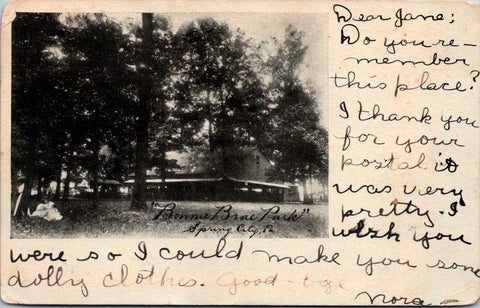 Dear Jane;
Do you re-
member
this place?
I thank you
for your
postal it
was very
pretty. I
wish you
were so I could make you some
dolly clothes. Good-bye
Nora.
"Bonnie Brae Park"
Spring City, Pa